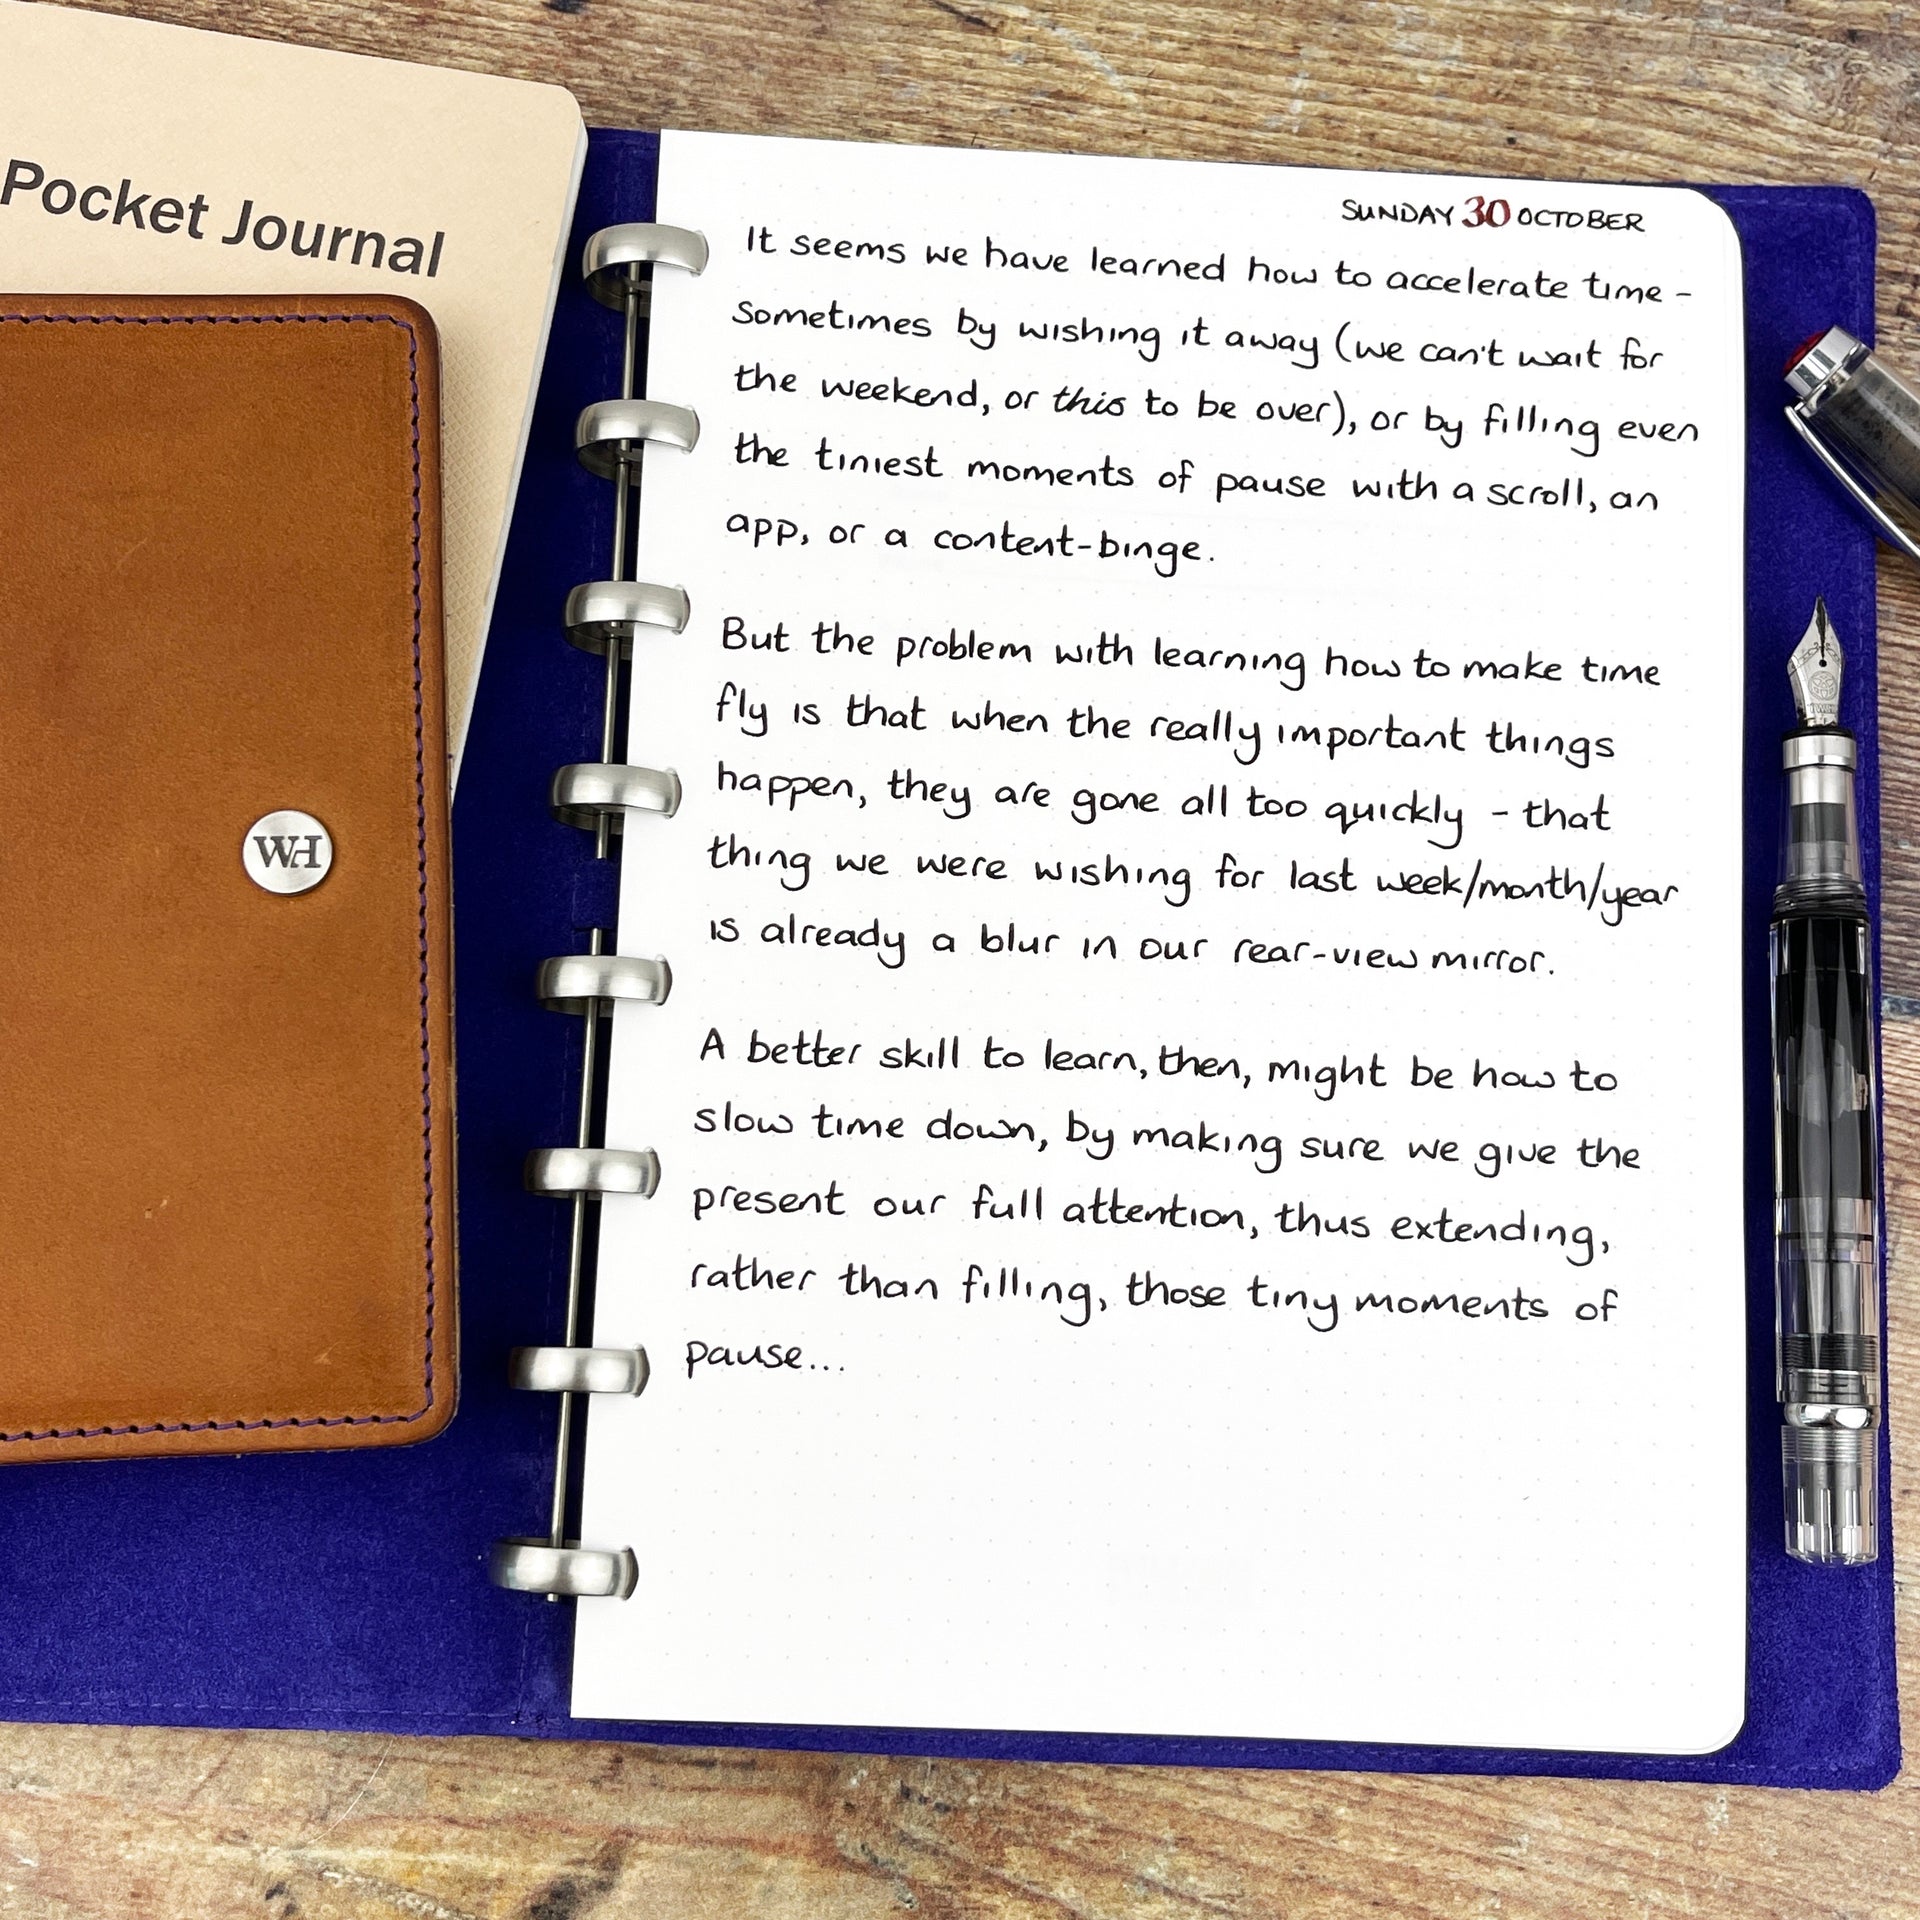 Pocket Journal
WH
SUNDAY 30 OCTOBER
It seems we have learned how to accelerate time -
sometimes by wishing it away (we can't wait for
the weekend, or this to be over), or by filling even
the tiniest moments of pause with a scroll, an
app, or a content-binge.
But the problem with learning how to make time
fly is that when the really important things
happen, they are gone all too quickly - that
thing we were wishing for last week/month/year
is already a blur in our rear-view mirror.
A better skill to learn, then, might be how to
slow time down, by making sure we give the
present our full attention, thus extending,
rather than filling, those tiny moments of
pause...